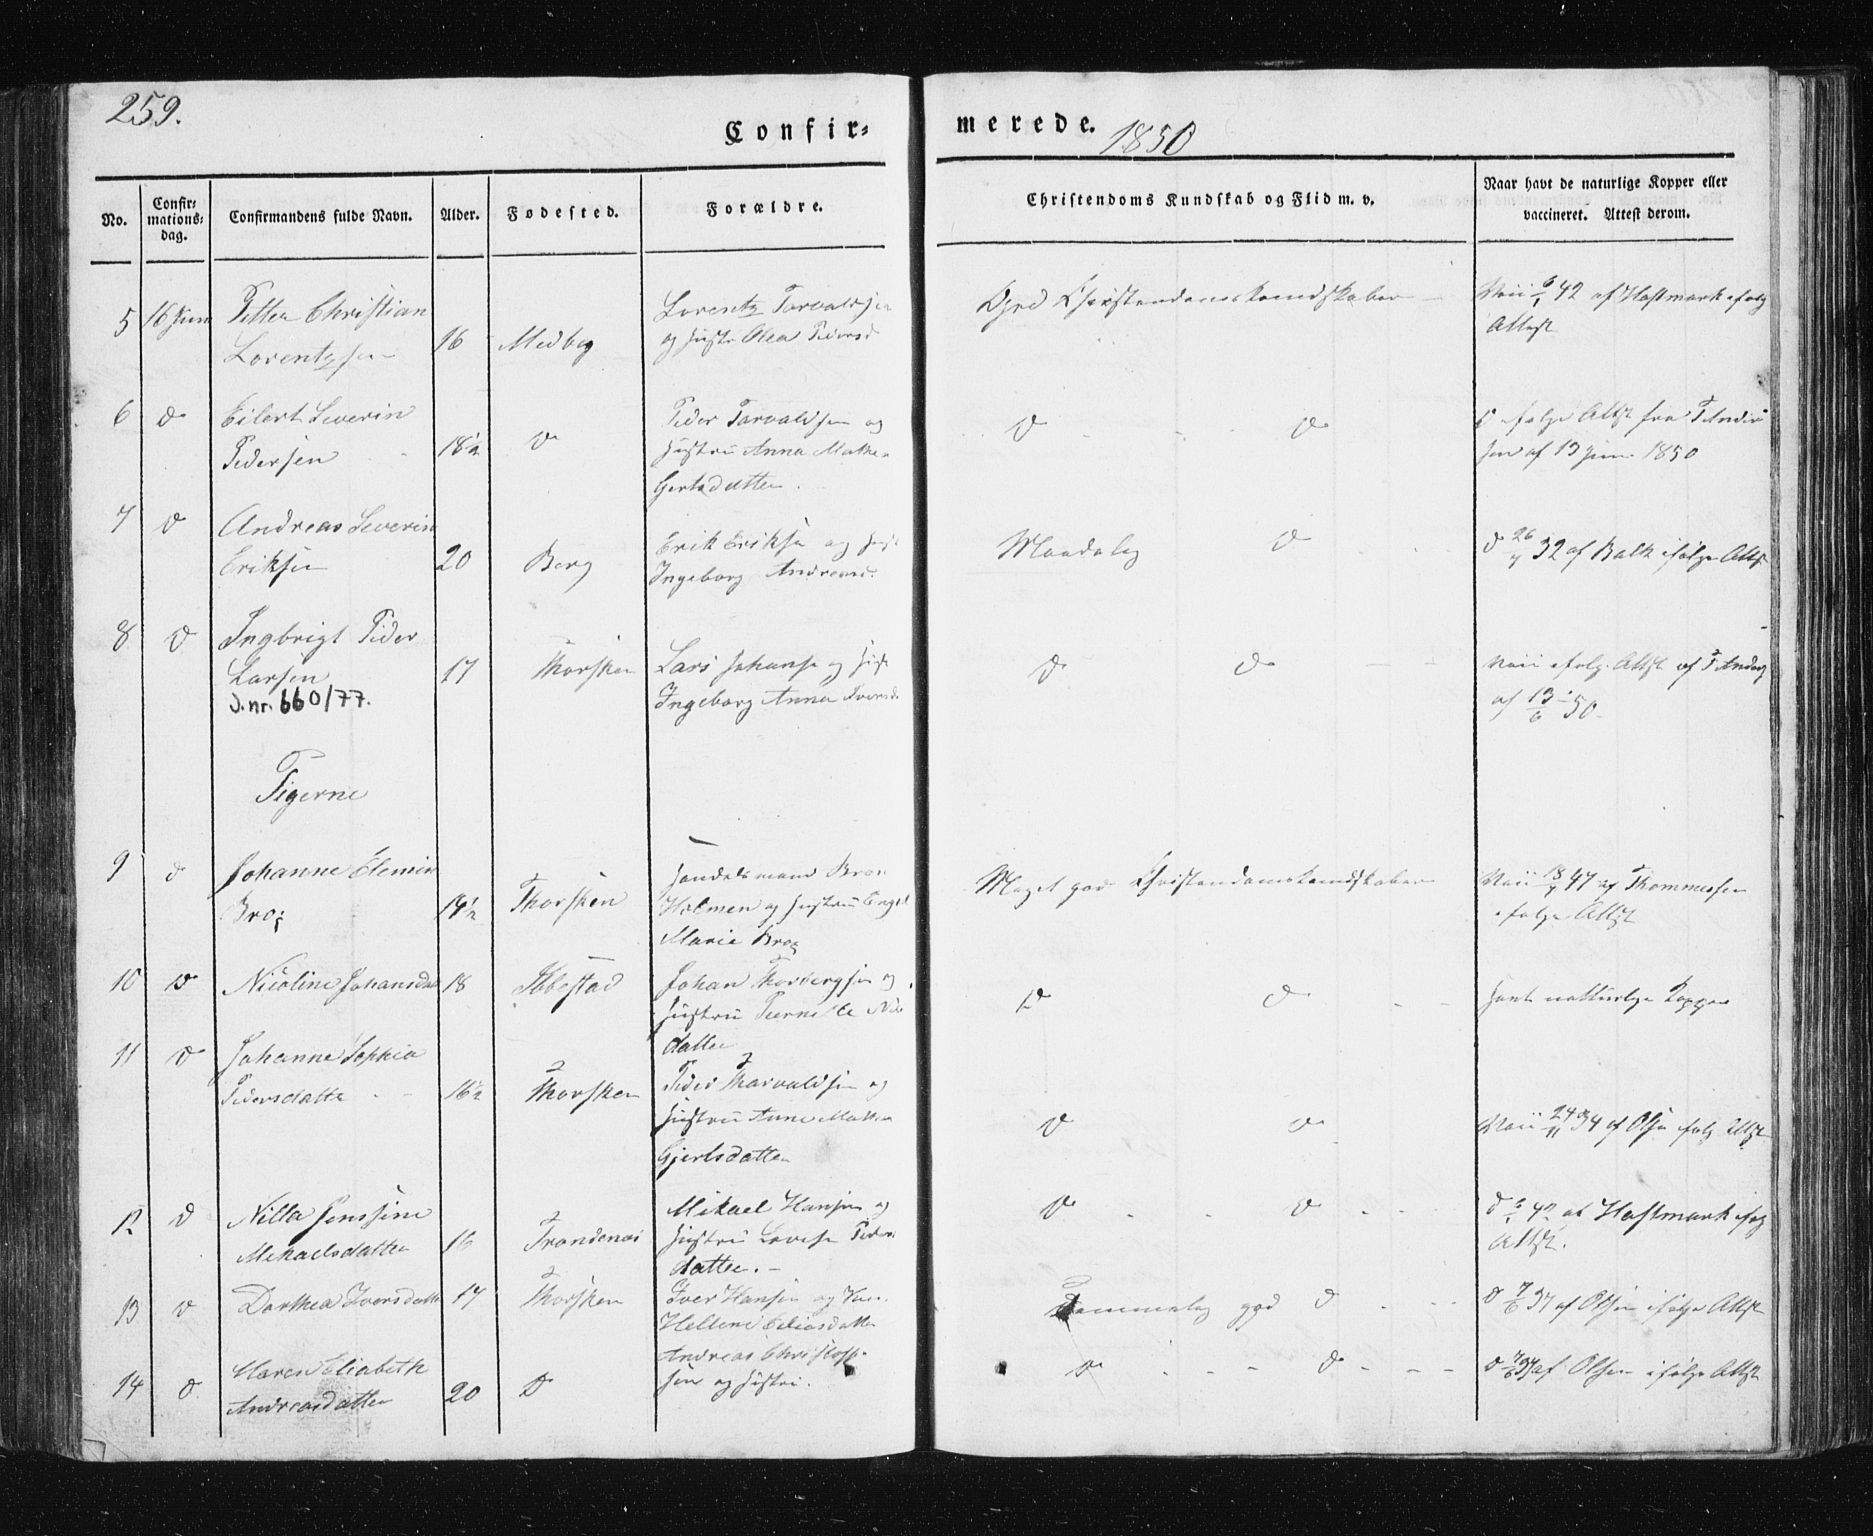 259.
Confir-
merede. 1850
No.
Confir-
mations-
dag.
Confirmandens fulde Navn.
Alder.
Fødested.
Forældre.
Christendoms Kundskab og Flid m. v.
Naar havt de naturlige Kopper eller
vaccineret. Attest derom.
5 16 Juni Petter Christian
Lorentzsen 16 Medby
Lorentz Torvaldsen
og Hustr Olea Pedersd
God Christendomskundskaber
6/1 42 af Hostmark ifølg
Attest
6 d Eilert Severin
Pedersen 18½ d
Peder Torvaldsen og
Hustru Anna Mathea
Gertsdatter
d d
d ifølge Attst fra
af 13 Juni 1850
7 d Andreas Severin
Eriksen 20 Berg
Erik Eriksen og Hust
Ingeborg Andreasd.
Maadelig d
d 26 32 af Balk ifølge Attst
8 d Ingbrigt Peder
Larsen 17 Thorsken
J.nr. 660/77.
Lars Johans og Hust
Ingeborg Anna Iversd
d d
ifølg. Attst af
af 13/6 50.
Pigerne
9 d Johanne Elemin
Brox 14½ Thorsken
Handelsmand Brox
Holmen og Hustru Engel
Marie Brox
Meget god Christendomskundskaber
18 47 af Thommesen
ifølge Attst
10 d Nicoline Johansdat 18 Ibbestad
Johan Thorbergsen og
Hustru Pernille Nils
datter
d d
Havt naturlige Kopper
11 d Johanne Sophia
Pedersdatter 16½ Thorsken
Peder Thorvaldsen og
Hustru Anne Mathea
Gjertsdatter
d d
24/11 34 af Olsen ifølg Attst
12 d Nilla Jenssine
Mikaelsdatter 16 Trondenæs
Mikael Hansen og
Hustru Lovise Peders
datter.
d d
d 6/1 42 af Hostmark ifølg
Attst.
13 d Dorthea Iversdatter 17 Thorsken
Iver Hansen og
Hellene Eliasdatter
Temmelig god d
d 7/6 37 af Olsen ifølge Attst
14 d. Maren Eliabeth
Andreasdatter 20 d
Andreas Christoff
sen og Hustru.
d d
d 7/6 37 af Olsen ifølge Attst